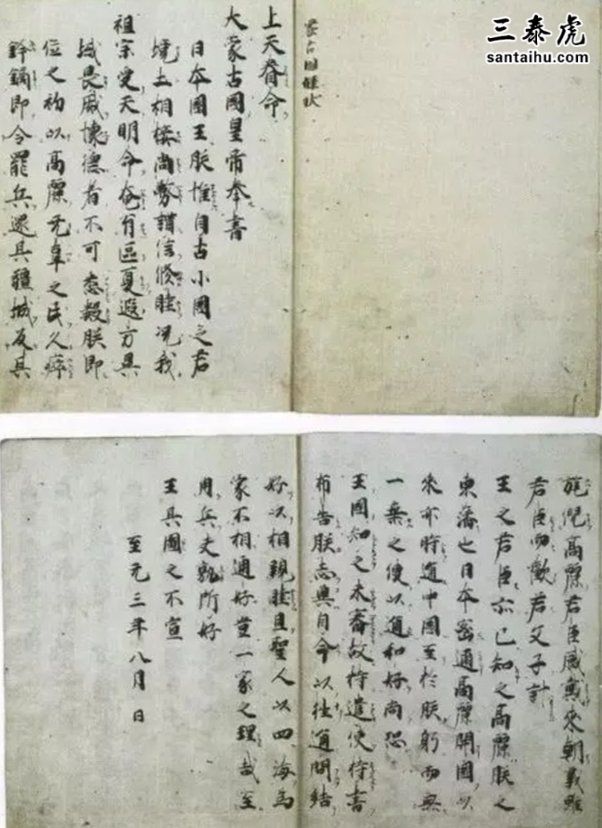 三泰虎
santaihu.com
蒙古国牒状
上天眷命
大蒙古國皇帝奉書
日本國王朕惟自古小國之君
境土相接尚務講信修睦况我
祖宗受天明命奄有區夏遐方異
域畏威懷德者不可悉數朕即
位之初以高麗无辜之民久瘁
鋒鏑即令罷兵還其疆域反其
旄倪高麗君臣感戴来朝義雖
君臣而歡若父子計
王之君臣亦已知之高麗朕之
東藩也日本密邇高麗開國以
来亦時通中國至於朕躬而無
一乗之使以通和好尚恐
王國知之未審故特遣使持書
布告朕志冀自今以往通問結
好以相親睦且聖人以四海為
家不相通好豈一家之理哉至
用兵夫孰所好
王其圖之不宣
至元三年八月 日